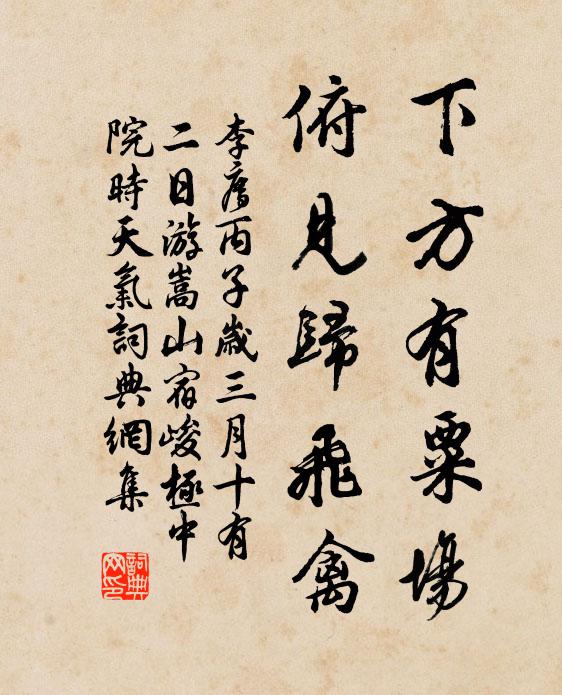 下方有粟場
俯見歸飛禽
李廌丙子歲三月十有
二日游嵩山宿峻極中
院時天氣詞典網集
詞典
网印